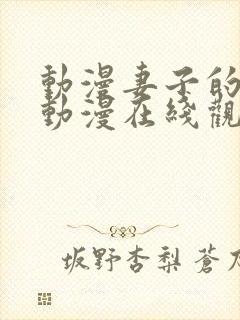 動漫妻子的
動漫在綫觀
坂野杏梨 蒼